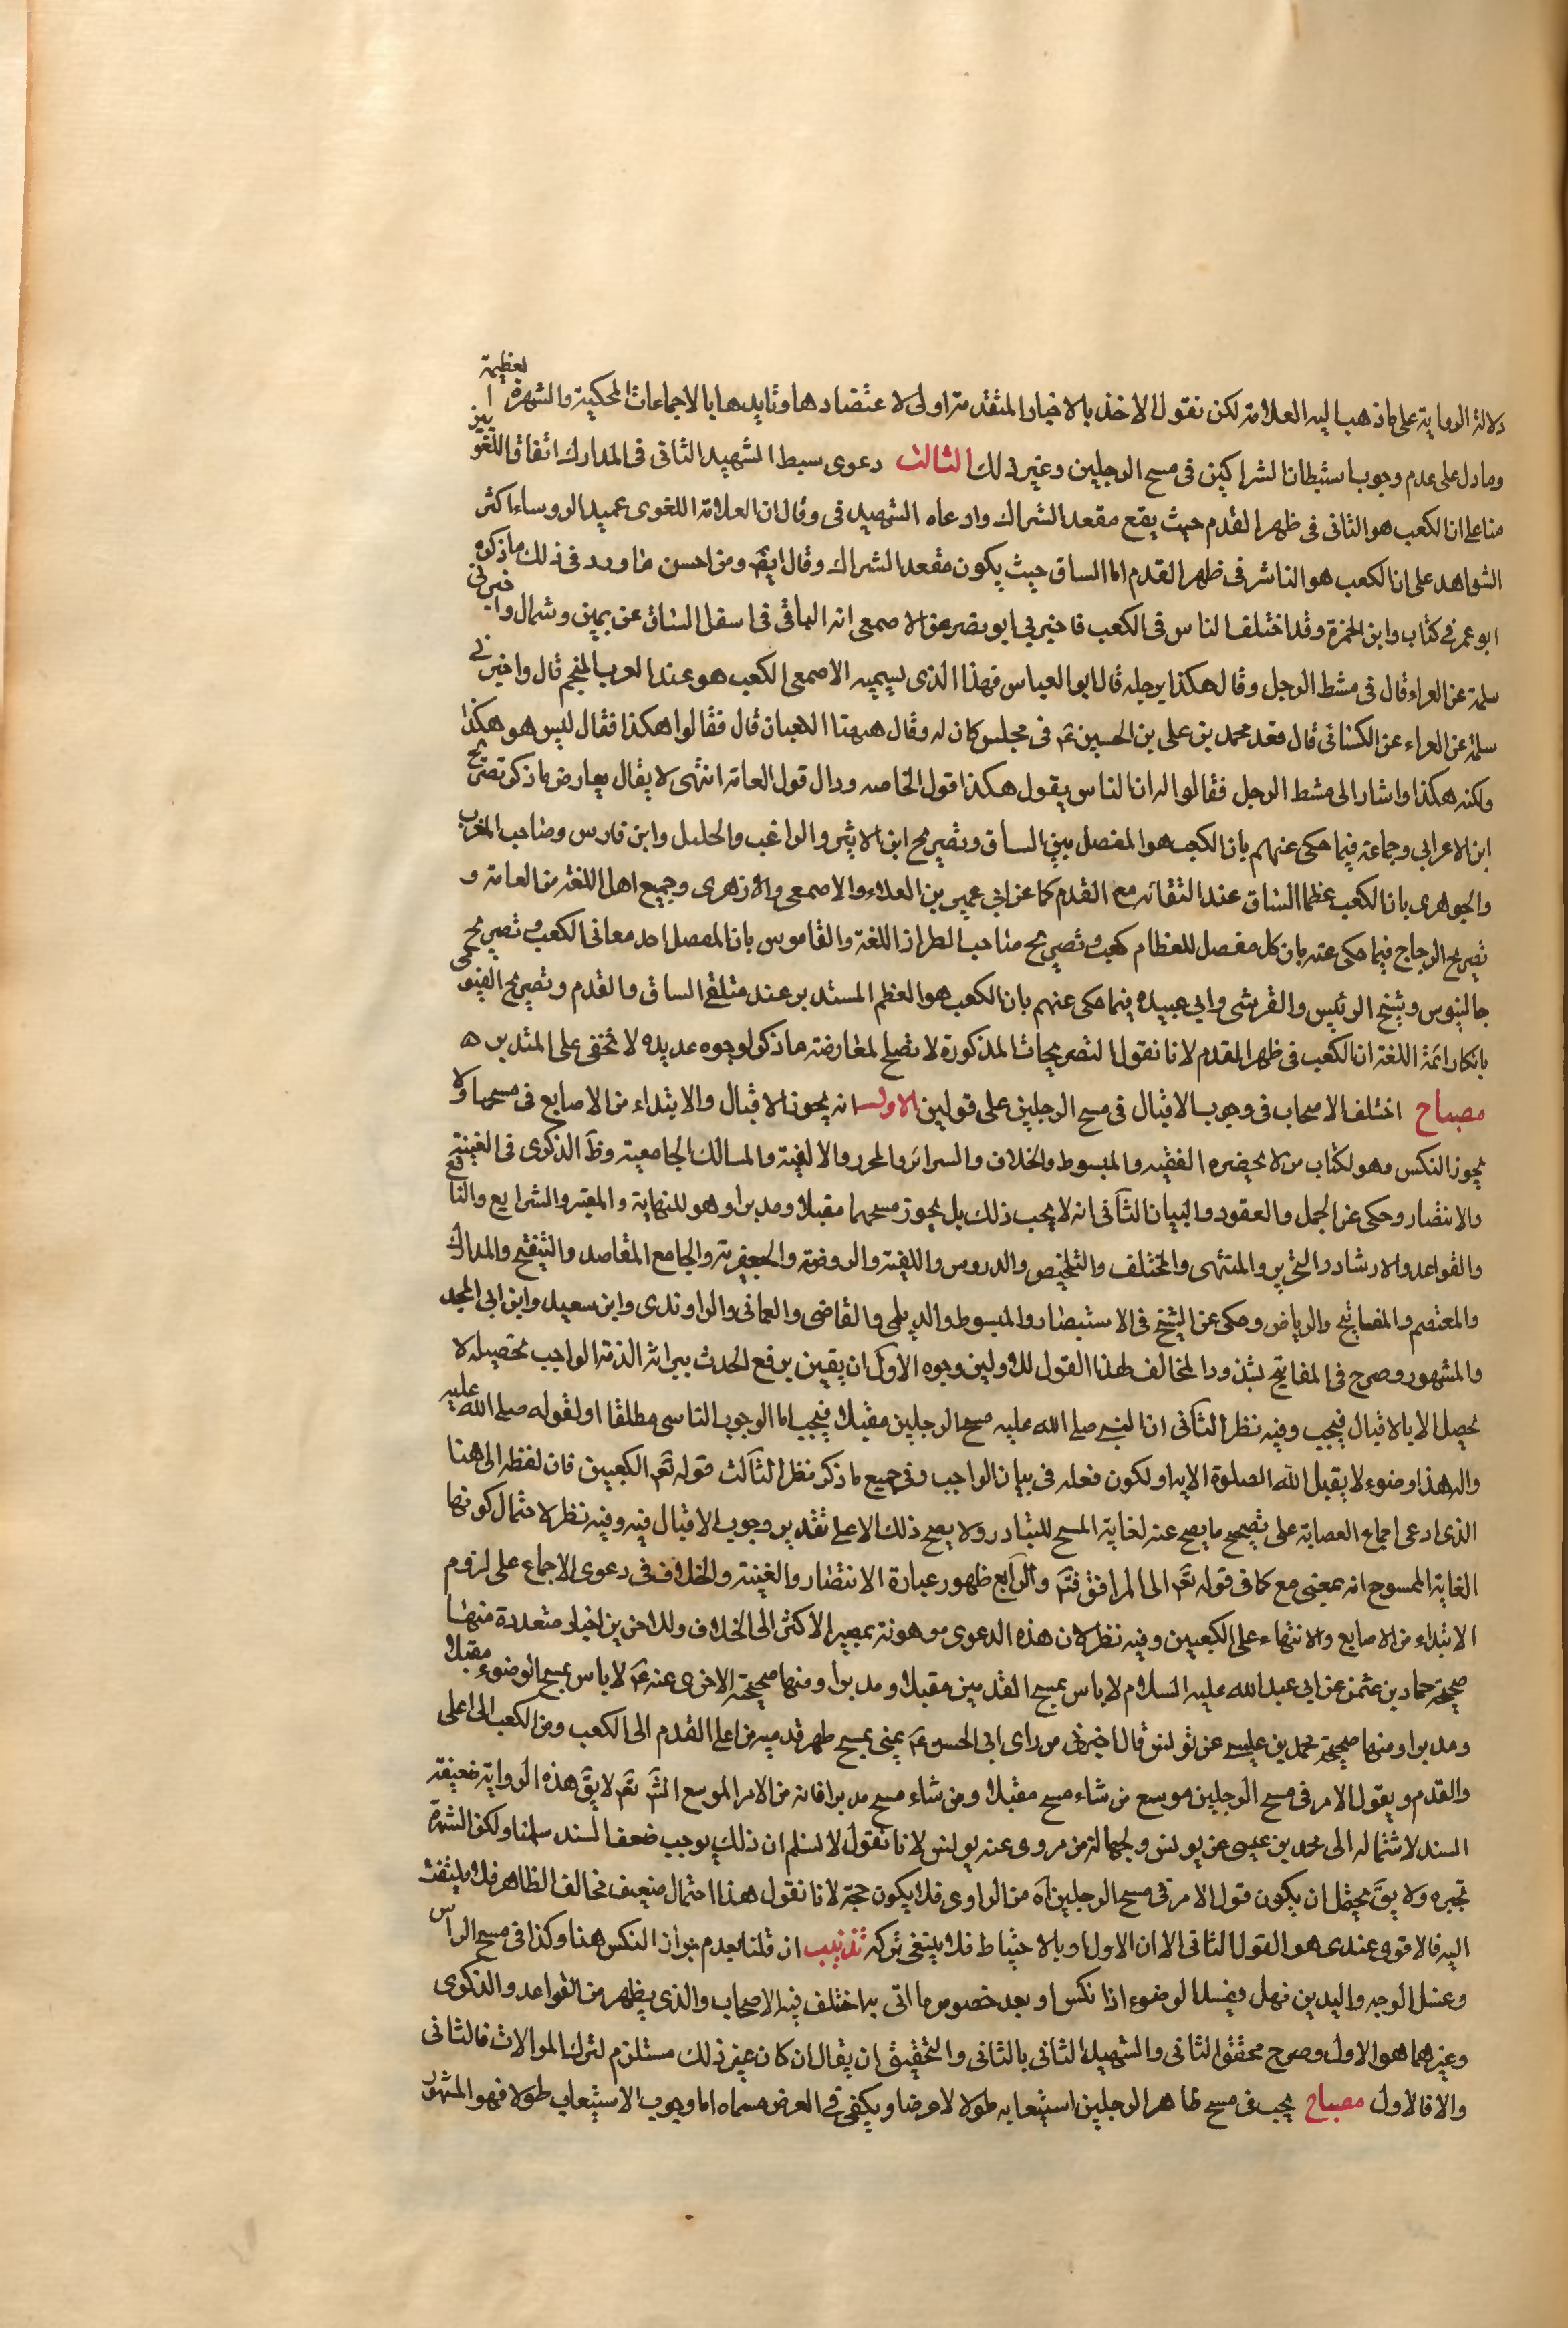 دلالة الرواية على ما ذهب اليه العلامة لكن نقول الاخذ بالاخبار المتقدمة اولى لاعتضادها وتايدها بالاجماعات المحكية والشهرة العظيمة
وما دل على عدم وجوب استبطان الشراكين في مسح الرجلين وغير ذلك الثالث دعوى سبط الشهيد الثاني في المدارك اتفاق اللغويين
منا على ان الكعب هو الثاتى في ظهر القدم حيث يقع مقعد الشراك وادعاه الشهيد في وقال ان العلامة اللغوى عميد الروساء اكثر
الشواهد على ان الكعب هو الناشز في ظهر القدم امام الساق حيث يكون مقعد الشراك وقال ايضا ومن احسن ما ورد في ذلك ما ذكره
ابو عمر في كتاب وابن الحمزة وقد اختلف الناس في الكعب فاخبرني ابو بصر عن الاصمعى انه الباقى في اسفل الساق عن يمين وشمال واخبرنى
سلمة عن الفراء قال في مشط الرجل وقال هكذا برجله قال ابو العباس فهذا الذى يسميه الاصمعى الكعب هو عند العرب المنجم قال واخبرنى
سلمة عن الفراء عن الكسائى قال قعد محمد بن على بن الحسين ع في مجلس كان له وقال ههنا الكعبان قال فقالوا هكذا فقال ليس هو هكذا
ولكنه هكذا واشار الى مشط الرجل فقالوا له ان الناس يقول هكذا قول الخاصه وذاك قول العامة انتهى لا يقال يعارض ما ذكر تصريح
ابن الاعرابي وجماعة فيما حكى عنهم بان الكعب هو المفصل بين الساق وتصريح ابن الاثير والراغب والخليل وابن فارس وصاحب المغرب
والجوهرى بان الكعب عظما الساق عند التقائه مع القدم كما عن ابي عمير بن العلاء والاصمعى والازهرى وجميع اهل اللغة من العامة و
تصريح الزجاج فيما حكى عنه بان كل مفصل للعظام كعب وتصريح صاحب الطراز اللغة والقاموس بان المفصل احد معانى الكعب وتصريح
جالينوس وشيخ الرئيس والقرشى وابي عبيده فيما حكى عنهم بان الكعب هو العظم المستدير عند ملتقى الساق والقدم وتصريح الفيومى
بانكار ائمة اللغة ان الكعب في ظهر القدم لانا نقول التصريحات المذكورة لا تصلح لمعارضة ما ذكر لوجوه عديده لا تخفى على المتدبر ه
مصباح اختلف الاصحاب في وجوب الاقبال في مسح الرجلين على قولين الاول انه يجوز الاقبال والابتداء من الاصابع في مسحها ولا
يجوز النكس وهو لكتاب من لا يحضره الفقيه والمبسوط والخلاف والسرائر والمحرر والالفية والمسالك الجامعية وظ الذكرى في الغنية
والانتصار وحكى عن الجمل والعقود والتبيان الثانى انه لا يجب ذلك بل يجوز مسحهما مقبلا ومدبرا وهو للنهاية والمعتبر والشرايع والنافع
والقواعد والارشاد والتحرير والمنتهى والمختلف والتلخيص والدروس واللفية والروضة والجعفرية والجامع المقاصد والتنقيح والمدارك
والمعتصم والمفاتيح والرياض وحكى عن الشيخ في الاستبصار والمبسوط والديلمى والقاضى والعمانى والراوندى وابن سعيد وابن ابي المجد
والمشهور وصرح في المفاتيح بشذوذ المخالف لهذا القول للاولين وجوه الاول ان يقين برفع الحدث ببرائة الذمة الواجب تحصيله لا
يحصل الا بالاقبال فيجب وفيه نظر الثانى ان النبى صلى الله عليه مسح الرجلين مقبلا فيجب اما الوجوب التاسى مطلقا او لقوله صلى الله عليه
واله هذا وضوء لا يقبل الله الصلوة الا به او لكون فعله في بيان الواجب وفى جميع ما ذكر نظر الثالث قوله تعم الكعبين فان لفظ الى هنا
الذى ادعى اجماع العصابة على تصحيح ما يصح عنه لغاية المسح للتبادر ولا يصح ذلك الا على تقدير وجوب الاقبال فيه وفيه نظر لاحتمال كونها
الغاية الممسوح انه بمعنى مع كما في قوله تعم الى المرافق فتم والرابع ظهور عبارة الانتصار والغنية والخلاف في دعوى الاجماع على لزوم
الابتداء من الاصابع والانتهاء على الكعبين وفيه نظر لان هذه الدعوى موهونة بمصير الاكثر الى الخلاف وللاخرين اخبار متعددة منها
صحيحة حماد بن عثمن عن ابى عبد الله عليه السلام لا باس بمسح القدمين مقبلا ومدبرا ومنها صحيحته الاخرى عنه ع لا باس بمسح الوضوء مقبلا
ومدبرا ومنها صحيحة محمد بن عيسى عن يونس قال اخبرنى من راى ابى الحسن ع بمنى يمسح ظهر قدميه من اعلا القدم الى الكعب ومن الكعب الى اعلى
والقدم ويقول الامر في مسح الرجلين موسع من شاء مسح مقبلا ومن شاء مسح مدبرا فانه من الامر الموسع انش تعم لا يق هذه الرواية ضعيفة
السند لاشتماله الى محمد بن عيسى عن يونس ولجهالة من مروى عنه يونس لانا نقول لا نسلم ان ذلك يوجب ضعف السند سلمنا ولكن الشهرة
تجبره ولا يق يحتمل ان يكون قول الامر في مسح الرجلين اه من الراوى فلا يكون حجة لانا نقول هذا احتمال ضعيف مخالف الظاهر فلا يلتفت
اليه فالاقوى عندى هو القول الثانى الا ان الاول اوبلا حتياط فلا ينبغى تركه تذنيب ان قلنا بعدم جواز النكس هنا وكذا في مسح الراس
وغسل الوجه واليدين فهل يفسد الوضوء اذا نكس او بعد خصوص ما اتى به اختلف فيه الاصحاب والذى يظهر من القواعد والذكرى
وغيرهما هو الاول وصرح محقق الثانى والشهيد الثانى بالثانى والتحقيق ان يقال ان كان غير ذلك مستلزم لترك الموالات فالثانى
والا فالاول مصباح يجب في مسح ظاهر الرجلين استيعابه طولا لا عرضا ويكفى في العرض مسماه اما وجوب الاستيعاب طولا فهو المشهور